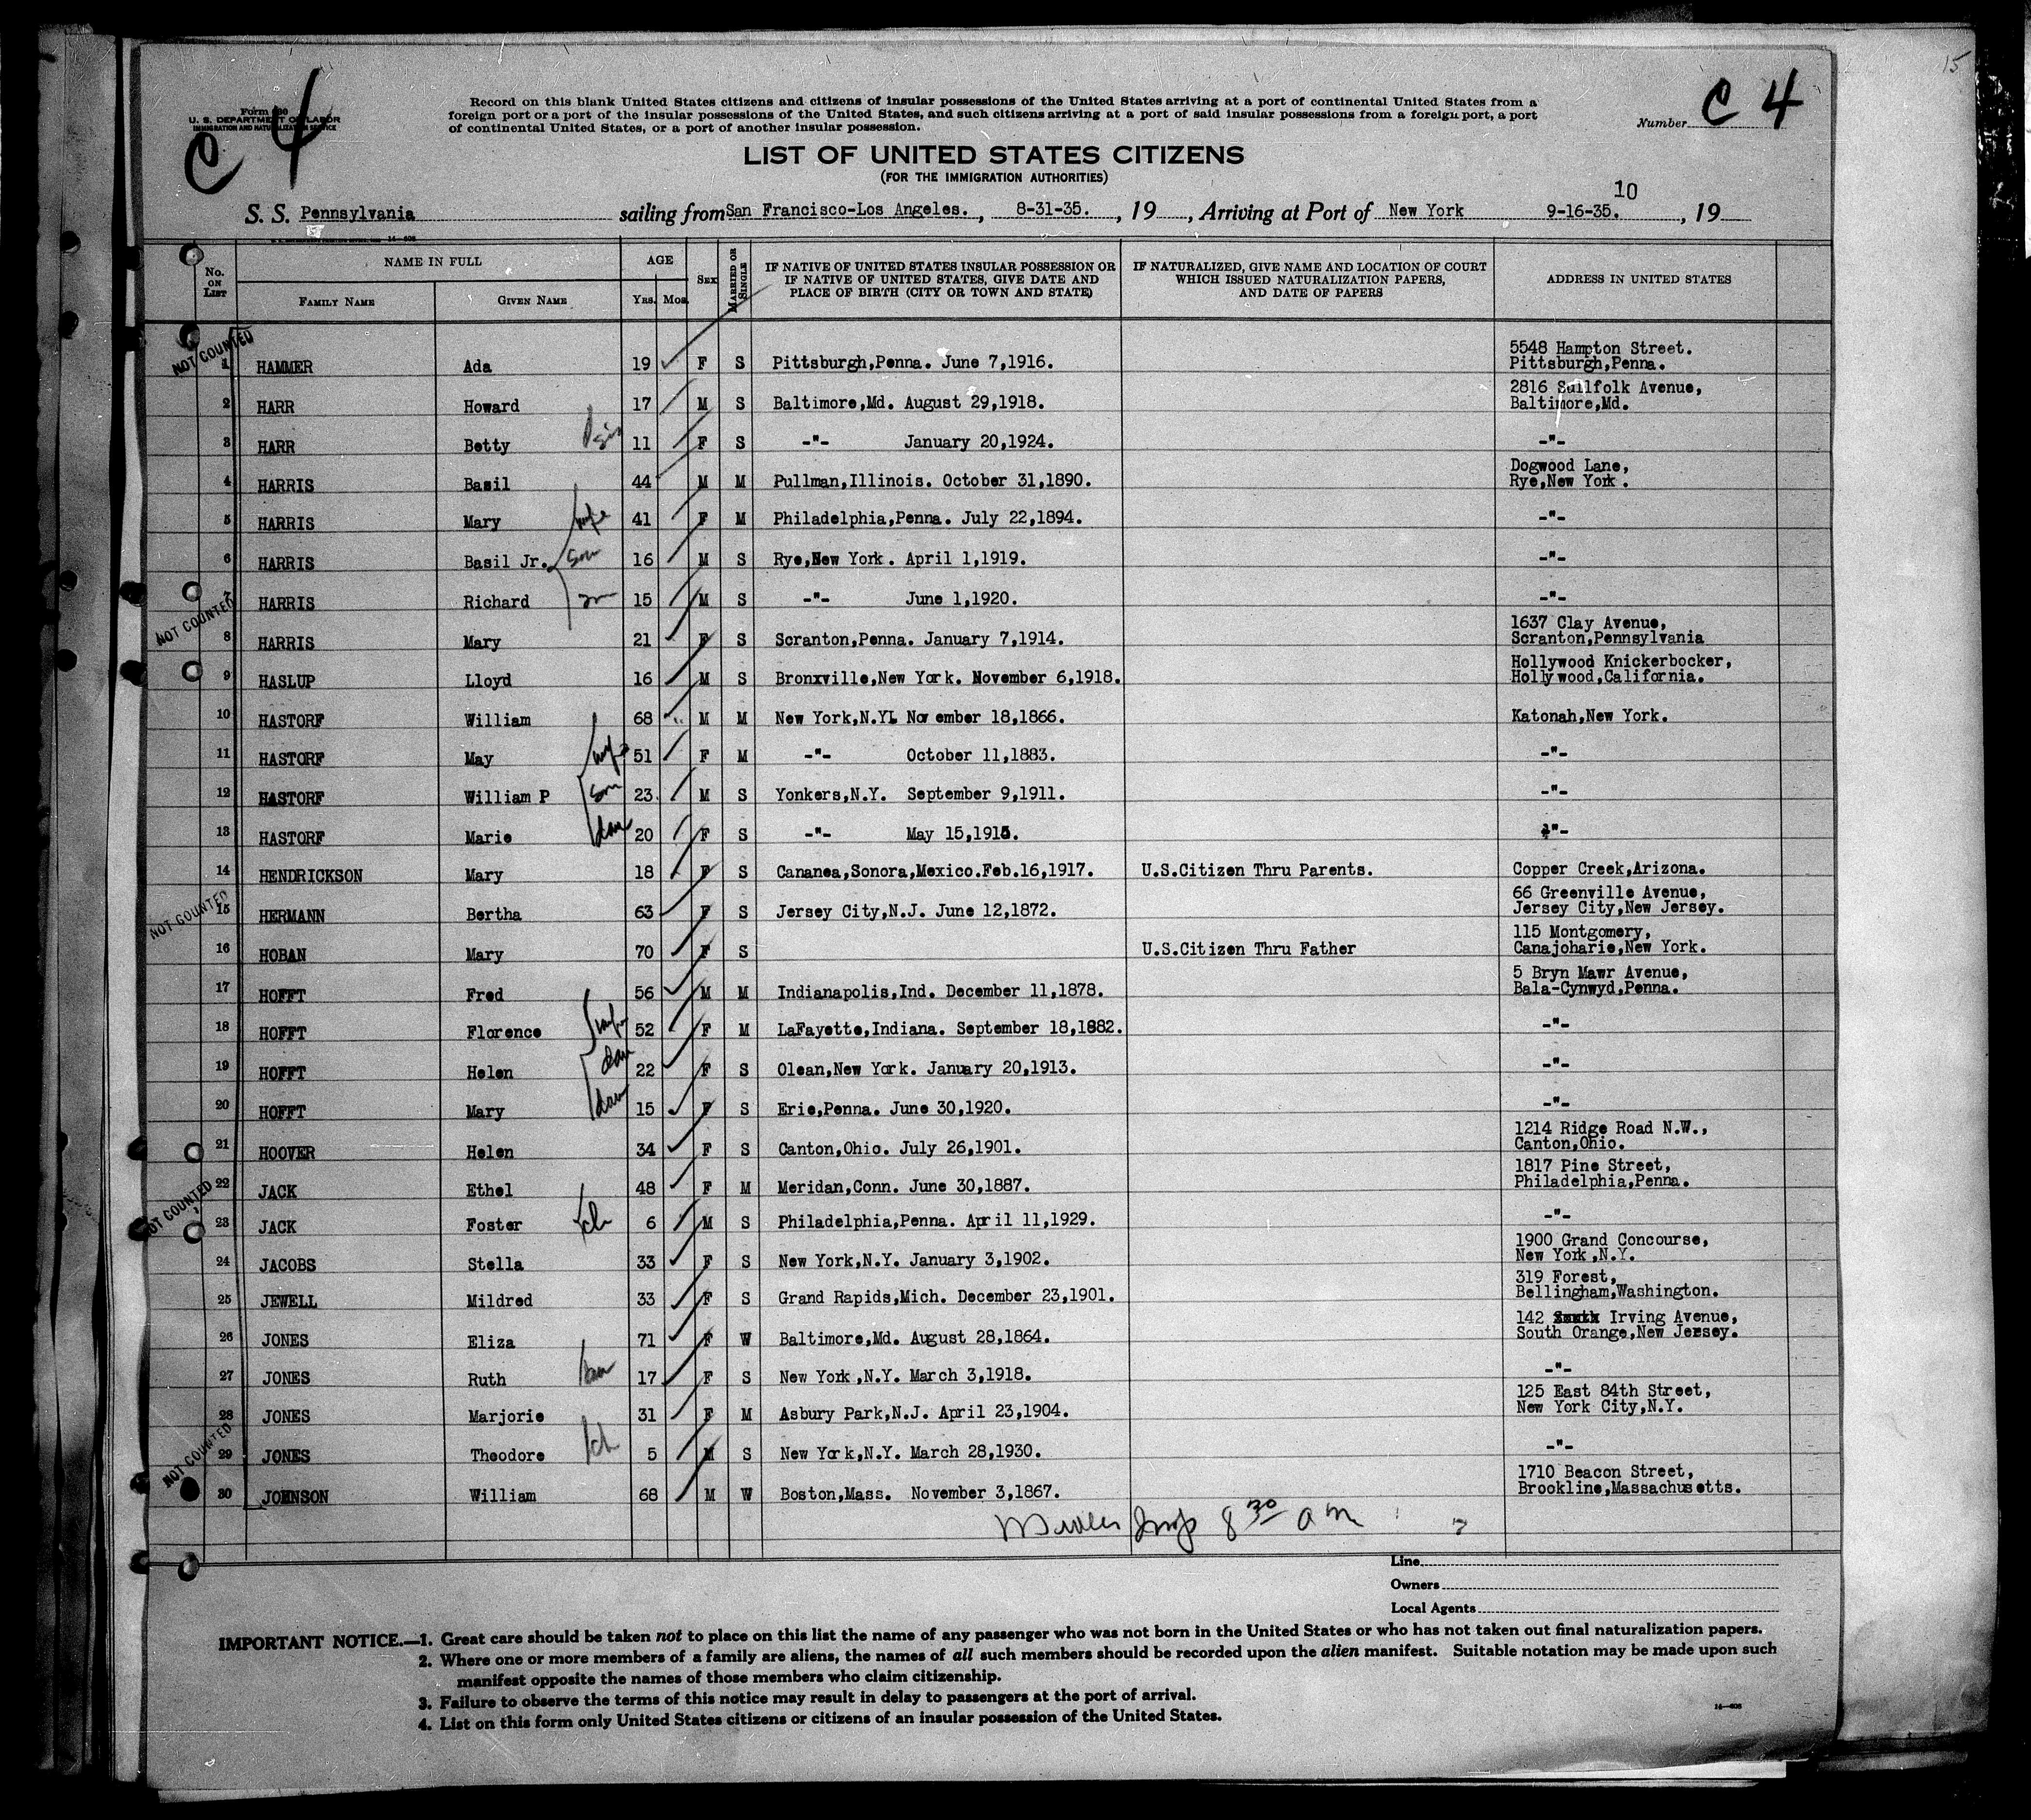 15
C 4
Form 630
U. S. DEPARTMENT OF LABOR
IMMIGRATION AND NATURALIZATION SERVICE
Record on this blank United States citizens and citizens of insular possessions of the United States arriving at a port of continental United States from a
foreign port or a port of the insular possessions of the United States, and such citizens arriving at a port of said insular possessions from a foreign port, a port
of continental United States, or a port of another insular possession.
Number C 4
LIST OF UNITED STATES CITIZENS
(FOR THE IMMIGRATION AUTHORITIES)
10
S. S. Pennsylvania sailing from San Francisco-Los Angeles. , 8-31-35. , 19 , Arriving at Port of New York 9-16-35. , 19
14—608
No. ON LIST NAME IN FULL FAMILY NAME GIVEN NAME AGE YRS. MOS. SEX MARRIED OR SINGLE IF NATIVE OF UNITED STATES INSULAR POSSESSION OR IF NATIVE OF UNITED STATES, GIVE DATE AND PLACE OF BIRTH (CITY OR TOWN AND STATE) IF NATURALIZED, GIVE NAME AND LOCATION OF COURT WHICH ISSUED NATURALIZATION PAPERS, AND DATE OF PAPERS ADDRESS IN UNITED STATES
NOT COUNTED
1 HAMMER Ada 19 F S Pittsburgh,Penna. June 7,1916. 5548 Hampton Street. Pittsburgh,Penna.
2 HARR Howard 17 M S Baltimore,Md. August 29,1918. 2816 Avenue, Baltimore,Md.
3 HARR Betty sis 11 F S -"- January 20,1924. -"-
4 HARRIS Basil 44 M M Pullman,Illinois. October 31,1890. Dogwood Lane, Rye,New York.
5 HARRIS Mary wife 41 F M Philadelphia,Penna. July 22,1894. -"-
6 HARRIS Basil Jr. son 16 M S Rye,New York. April 1,1919. -"-
7 HARRIS Richard son 15 M S -"- June 1,1920. -"-
NOT COUNTED
8 HARRIS Mary 21 F S Scranton,Penna. January 7,1914. 1637 Clay Avenue, Scranton,Pennsylvania
9 HASLUP Lloyd 16 M S Bronxville,New York. November 6,1918. Hollywood Knickerbocker, Hollywood,California.
10 HASTORF William 68 M M New York,N.Y. November 18,1866. Katonah,New York.
11 HASTORF May wife 51 F M -"- October 11,1883. -"-
12 HASTORF William P son 23 M S Yonkers,N.Y. September 9,1911. -"-
13 HASTORF Marie dau 20 F S -"- May 15,1915. -"-
14 HENDRICKSON Mary 18 F S Cananea,Sonora,Mexico.Feb.16,1917. U.S.Citizen Thru Parents. Copper Creek,Arizona.
NOT COUNTED
15 HERMANN Bertha 63 F S Jersey City,N.J. June 12,1872. 66 Greenville Avenue, Jersey City,New Jersey.
16 HOBAN Mary 70 F S U.S.Citizen Thru Father 115 Montgomery, Canajoharie,New York.
17 HOFFT Fred 56 M M Indianapolis,Ind. December 11,1878. 5 Bryn Mawr Avenue, Bala-Cynwyd,Penna.
18 HOFFT Florence wife 52 F M LaFayette,Indiana. September 18,1882. -"-
19 HOFFT Helen dau 22 F S Olean,New York. January 20,1913. -"-
20 HOFFT Mary dau 15 F S Erie,Penna. June 30,1920. -"-
21 HOOVER Helen 34 F S Canton,Ohio. July 26,1901. 1214 Ridge Road N.W., Canton,Ohio.
22 JACK Ethel 48 F M Meridan,Conn. June 30,1887. 1817 Pine Street, Philadelphia,Penna.
NOT COUNTED
23 JACK Foster ch 6 M S Philadelphia,Penna. April 11,1929. -"-
24 JACOBS Stella 33 F S New York,N.Y. January 3,1902. 1900 Grand Concourse, New York,N.Y.
25 JEWELL Mildred 33 F S Grand Rapids,Mich. December 23,1901. 319 Forest, Bellingham,Washington.
26 JONES Eliza 71 F W Baltimore,Md. August 28,1864. 142 Irving Avenue, South Orange,New Jersey.
27 JONES Ruth dau 17 F S New York,N.Y. March 3,1918. -"-
28 JONES Marjorie 31 F M Asbury Park,N.J. April 23,1904. 125 East 84th Street, New York City,N.Y.
NOT COUNTED
29 JONES Theodore ch 5 M S New York,N.Y. March 28,1930. -"-
30 JOHNSON William 68 M W Boston,Mass. November 3,1867. 1710 Beacon Street, Brookline,Massachusetts.
Insp 8 30 am
Line
Owners
Local Agents
IMPORTANT NOTICE.—1. Great care should be taken not to place on this list the name of any passenger who was not born in the United States or who has not taken out final naturalization papers.
2. Where one or more members of a family are aliens, the names of all such members should be recorded upon the alien manifest. Suitable notation may be made upon such
manifest opposite the names of those members who claim citizenship.
3. Failure to observe the terms of this notice may result in delay to passengers at the port of arrival.
4. List on this form only United States citizens or citizens of an insular possession of the United States.
14—608